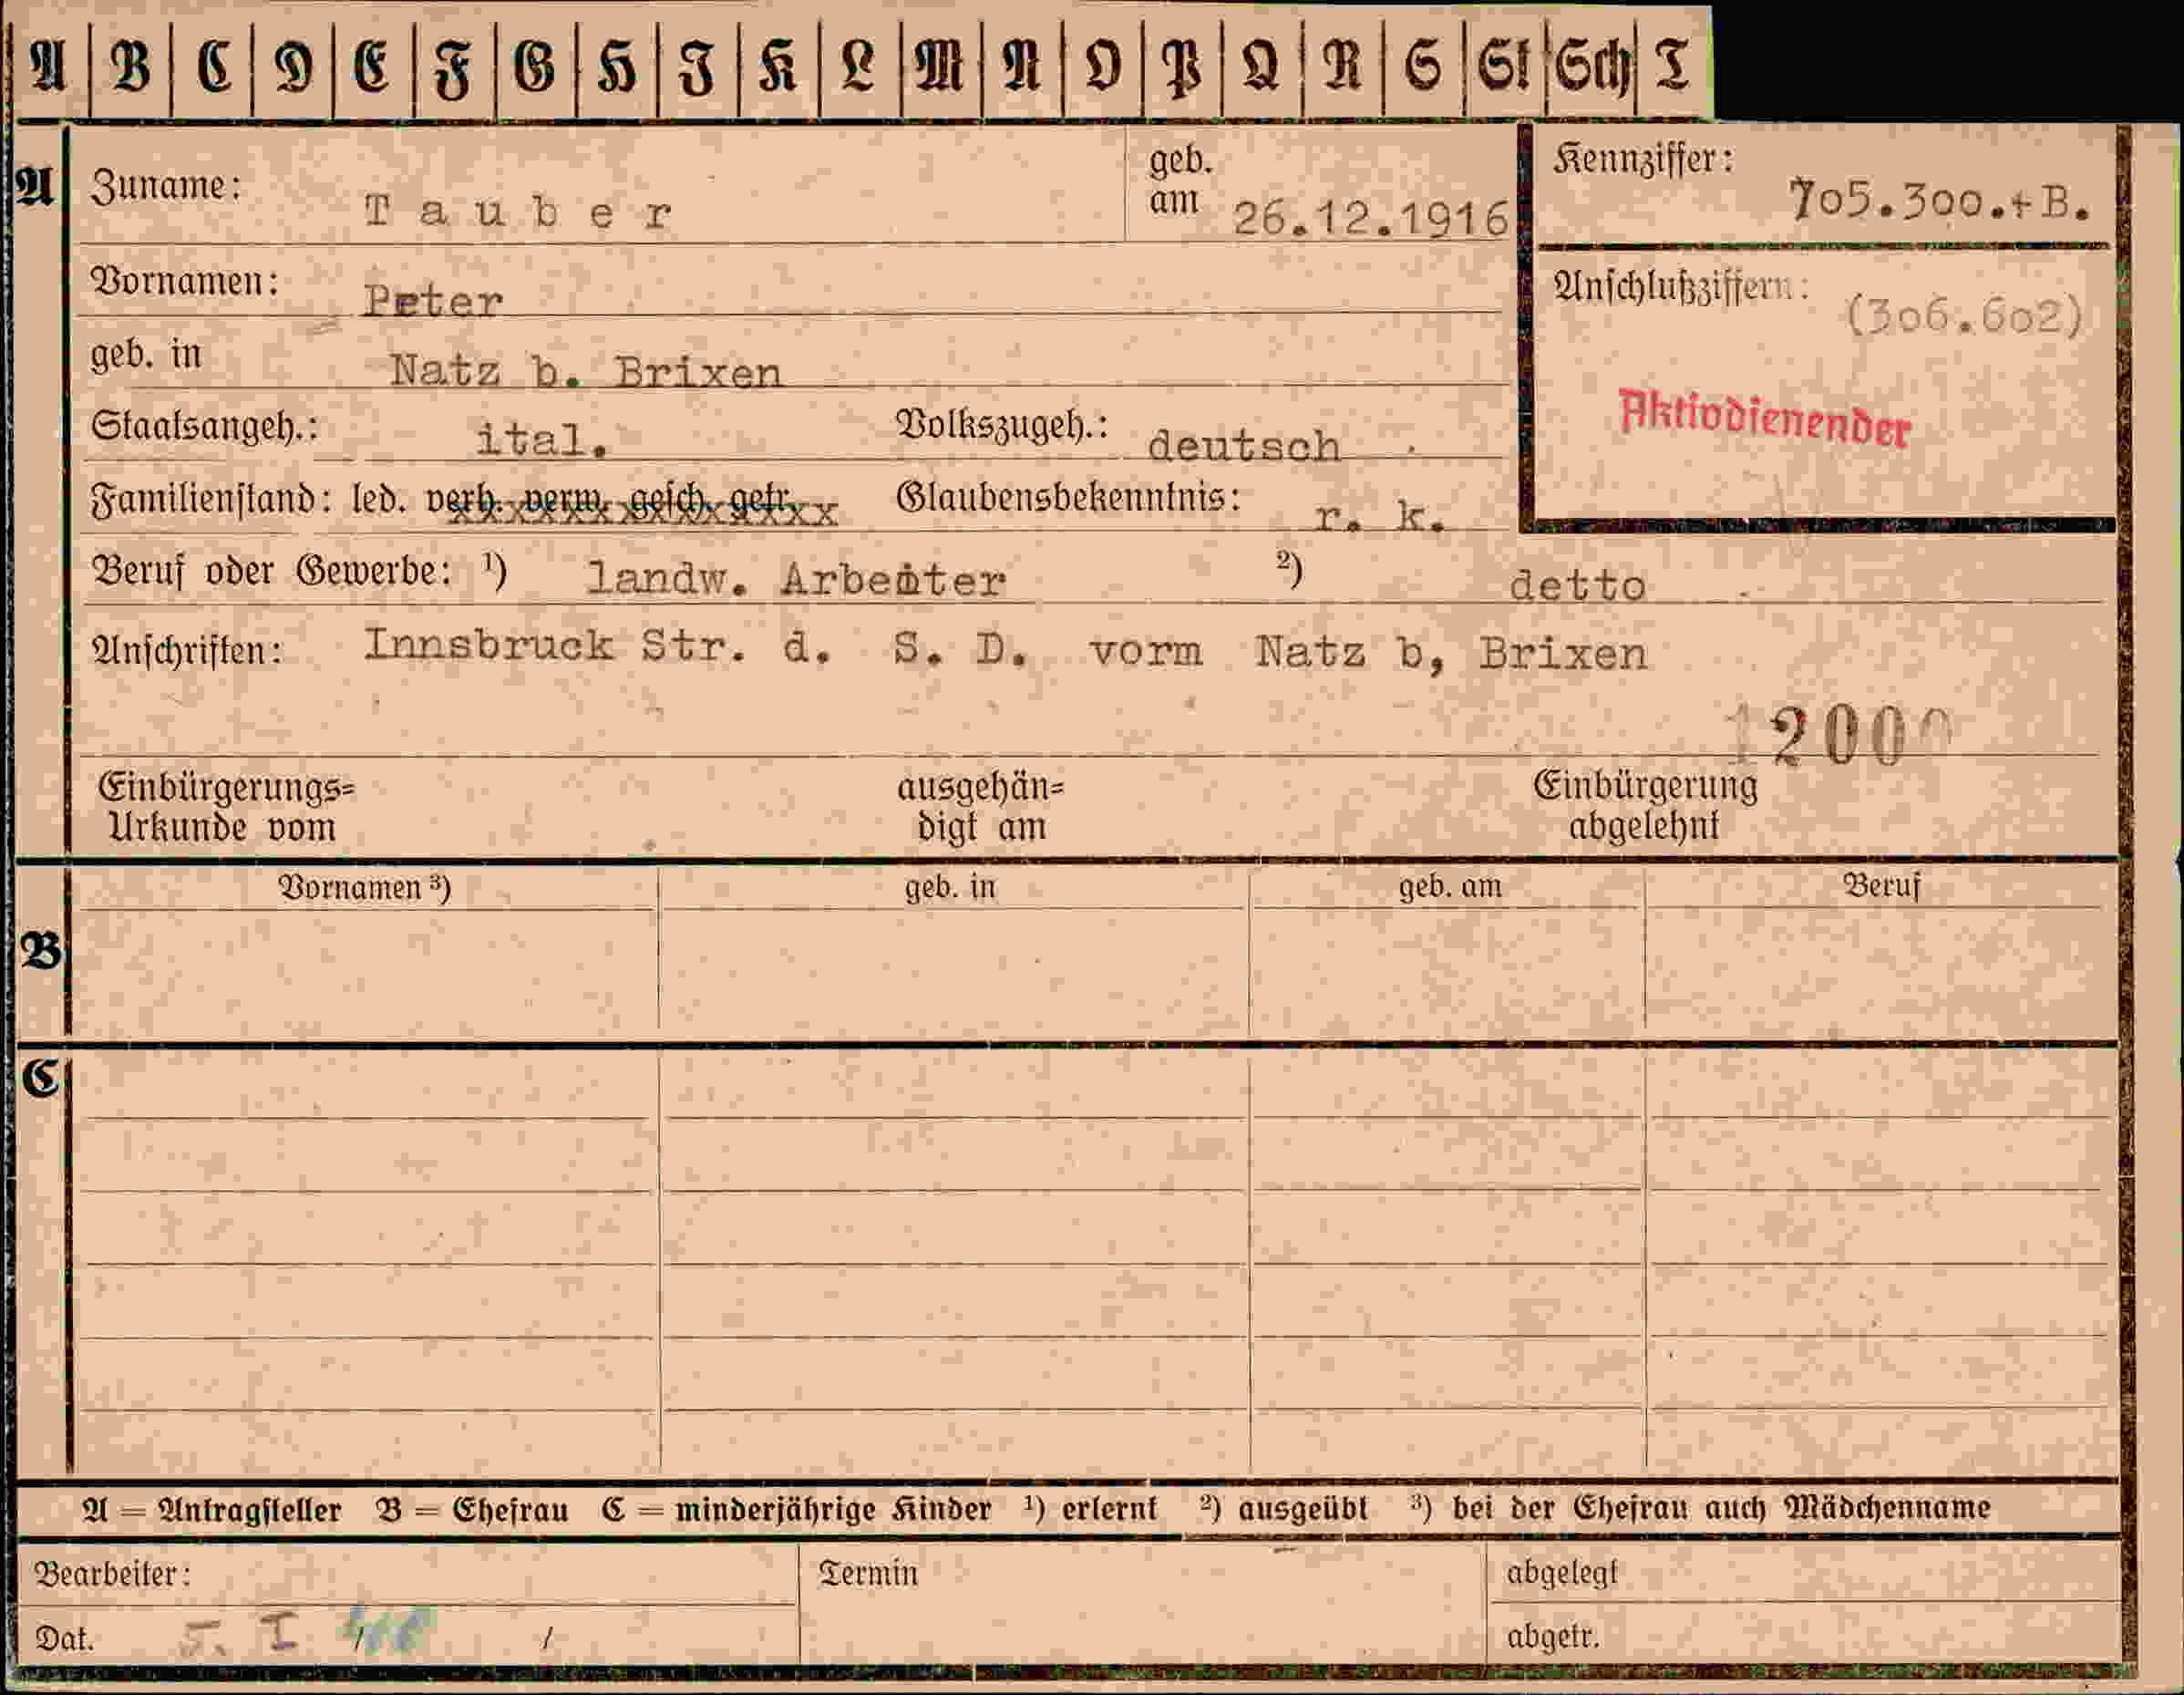 A B C D E F G H I K L M N O P Q R S St Sch T
A Zuname: Tauber geb. am 26.12.1916 Kennziffer: 705.300.+B.
Vornamen: Peter Anschlußziffern: (306.602)
geb. in Natz b. Brixen
Aktivdienender
Staatsangeh.: ital. Volkszugeh.: deutsch
Familienstand: led. verh. verw. gesch. getr. Glaubensbekenntnis: r. k.
Beruf oder Gewerbe: ¹) landw. Arbeiter ²) detto
Anschriften: Innsbruck Str. d. S. D. vorm Natz b, Brixen
12000
Einbürgerungs= ausgehän= Einbürgerung
Urkunde vom digt am abgelehnt
Vornamen ³) geb. in geb. am Beruf
B
C
A = Antragsteller B = Ehefrau C = minderjährige Kinder ¹) erlernt ²) ausgeübt ³) bei der Ehefrau auch Mädchenname
Bearbeiter: Termin abgelegt
Dat. 5. I / / abgetr.